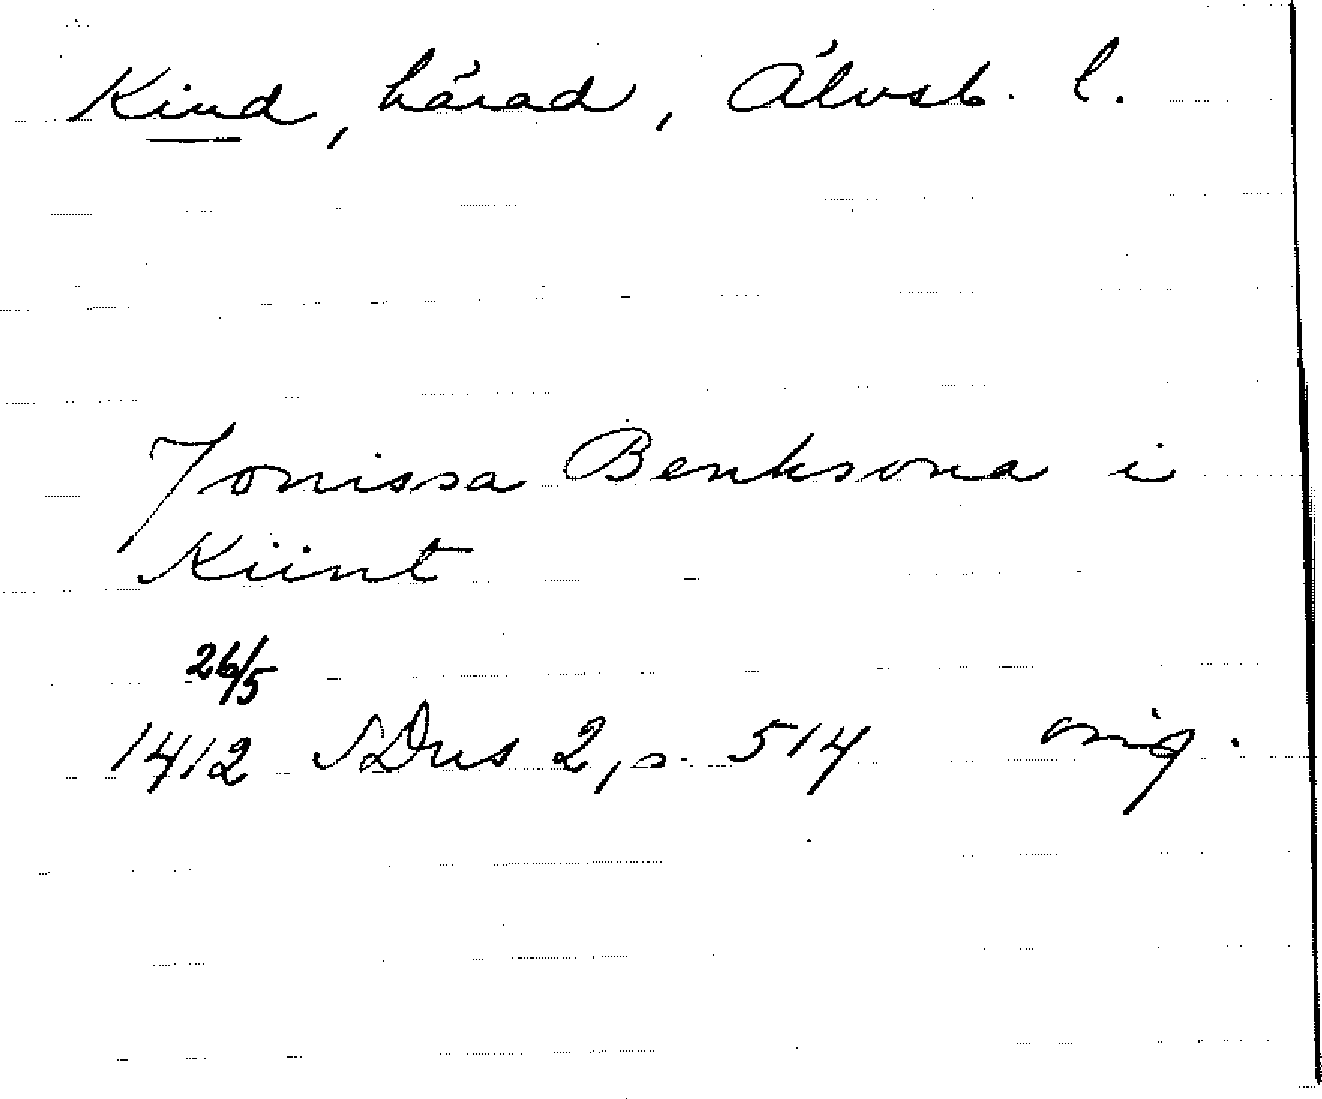 Kind, härad, Älvsb. l.
Jonissa Benksona i
Kiint
26/5
1412 SDns 2, s. 514 orig.